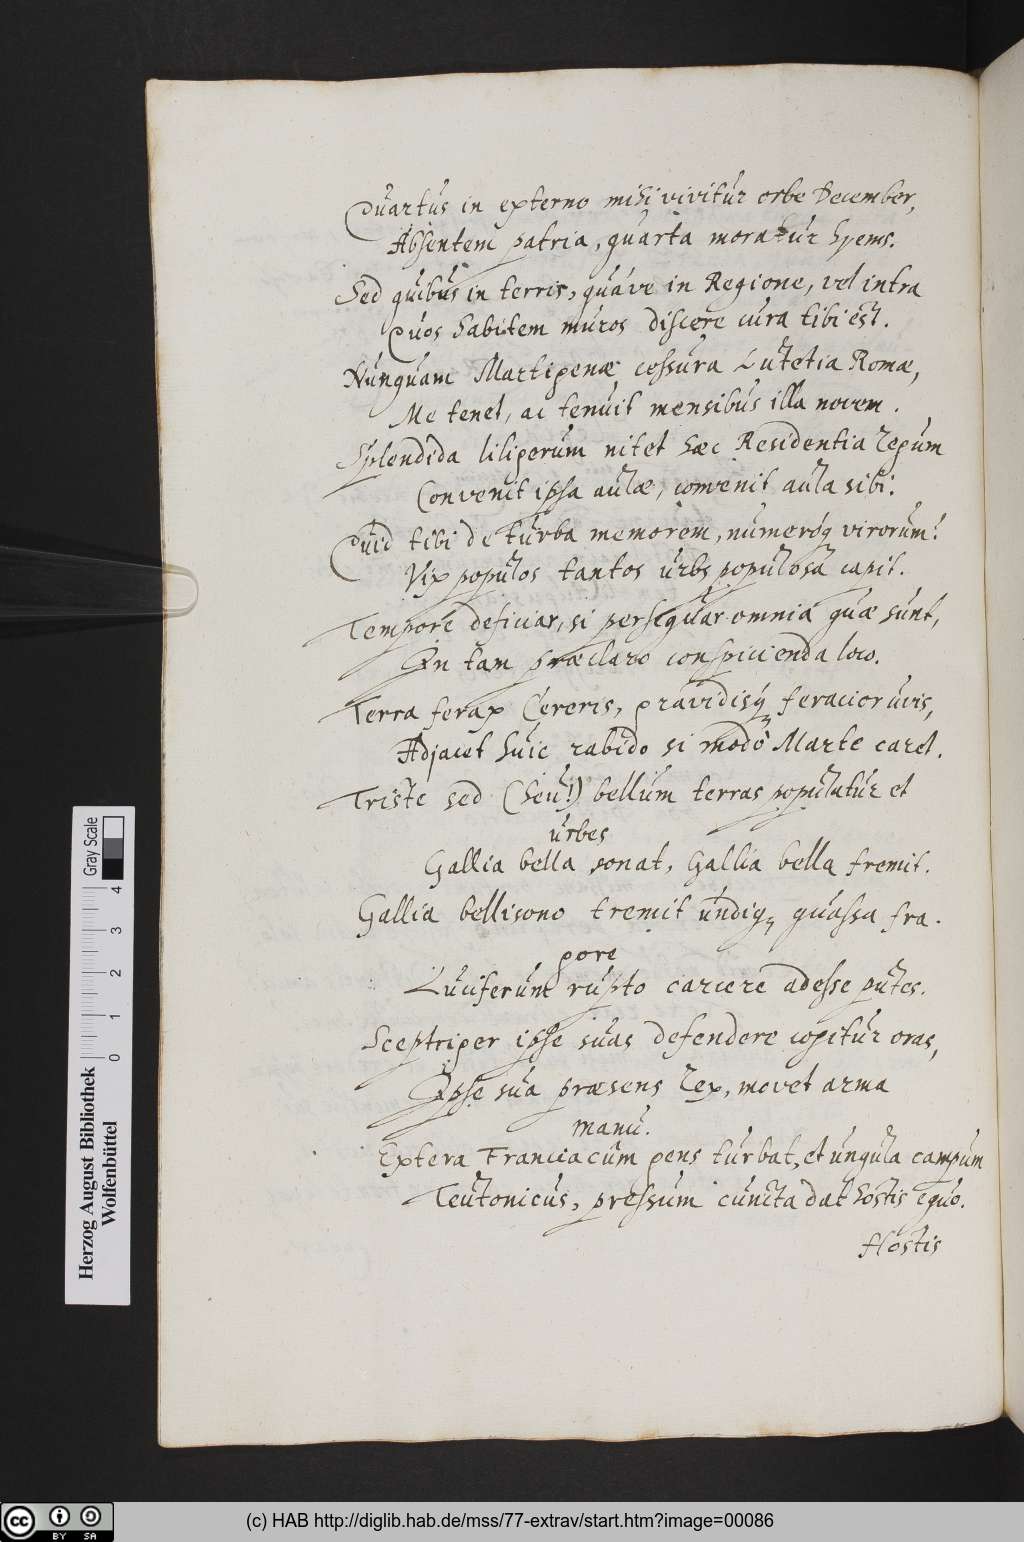 Quartus in externo mihi vivitur orbe December,
Absentem patria, quarta moratur hyems.
Sed quibus in terris, quáve in Regione, vel intra
Quos habitem muros discere cura tibi est.
Nunquam Martigenæ cessura Lutetia Romæ,
Me tenet, ac tenuit mensibus illa novem.
Splendida liligerum nitet hæc Residentia regum
Convenit ipsa aulæ, convenit aula sibi.
Quid tibi de turba memorem, numeróq virorum!
Vix populos tantos urbs populosa capit.
Tempore deficiar, si persequar omnia quæ sunt,
In tam præclaro conspicienda loco.
Terra ferax Cereris, gravidisq feracior uvis,
Adjacet huic rabido si modò Marte caret.
Triste sed (heu!) bellum terras populatur et
urbes
Gallia bella sonat, Gallia bella fremit.
Gallia bellisono tremit undiq quassa fra-
gore
Luciferum rupto carcere adesse putes.
Sceptriger ipse suas defendere cogitur oras,
Ipse sua præsens rex, movet arma
manu.
Extera Francia cum gens turbat, et ungula campum
Teutonicus, pressum cuncta dat hostis equo.
Hostis
Herzog August Bibliothek
Wolfenbüttel
0 1 2 3 4
Gray Scale
cc BY SA
(c) HAB http://diglib.hab.de/mss/77-extrav/start.htm?image=00086